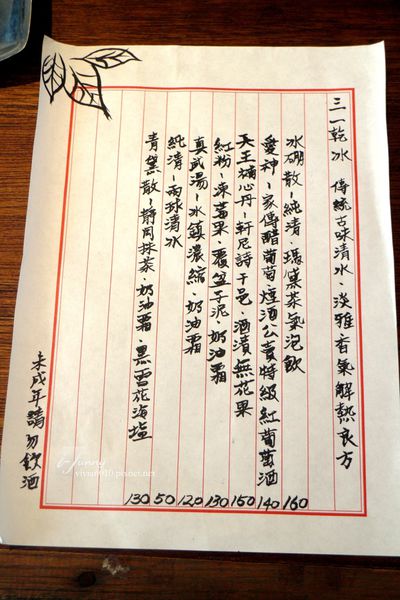 三一乾冰 傳統古味清水、淡雅香氣解熱良方
水硼散~純清、瑪黛茶氣泡飲 160
愛神~家傳醋葡萄、煙酒公賣特級紅葡萄酒 140
天王補心丹~軒尼詩干邑、酒漬無花果 150
紅粉~凍莓果、覆盆子泥、奶油霜 130
真武湯~水鎮濃縮、奶油霜 120
純清~兩球清水 50
青黛散~靜岡抹茶、奶油霜、黑雪花海塩 130
未成年請勿飲酒
vivian910.pixnet.net